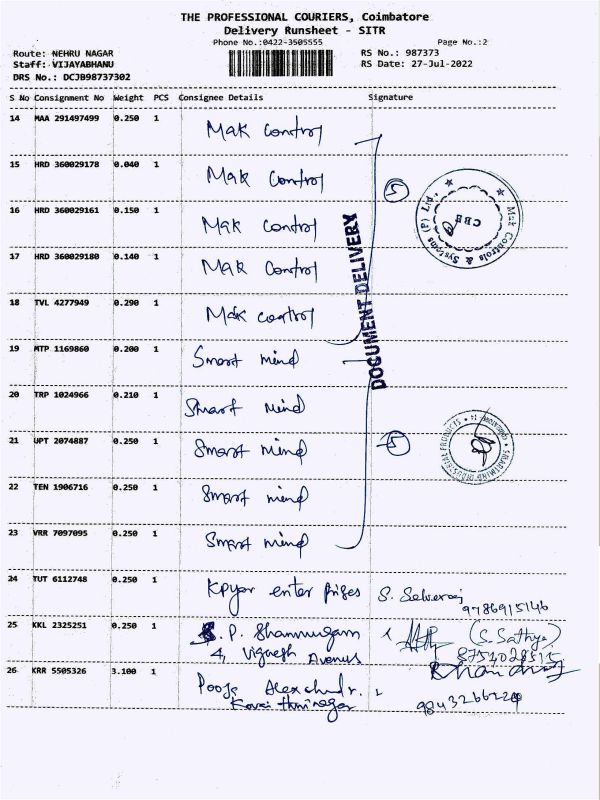 THE PROFESSIONAL COURIERS, Coimbatore
Delivery Runsheet - SITR
Phone No.:0422-3505555 Page No.:2
Route: NEHRU NAGAR RS No.: 987373
Staff: VIJAYABHANU RS Date: 27-Jul-2022
DRS No.: DCJB98737302
S No Consignment No Weight PCS Consignee Details Signature
14 MAA 291497499 0.250 1 Mak Control
15 HRD 360029178 0.040 1 Mak Control
5
16 HRD 360029161 0.150 1 Mak Control
Mak Controls & Systems (P) Ltd.
CBE
17 HRD 360029180 0.140 1 Mak Control
DOCUMENT DELIVERY
18 TVL 4277949 0.290 1 Mak control
19 MTP 1169860 0.200 1 Smart mind
20 TRP 1024966 0.210 1 Smart mind
21 UPT 2074887 0.250 1 Smart mind
5
SMARTMIND INDUSTRIAL PRODUCTS
22 TEN 1906716 0.250 1 Smart mind
23 VRR 7097095 0.250 1 Smart mind
24 TUT 6112748 0.250 1 enter prises S. Selveraj
9786915146
25 KKL 2325251 0.250 1 P. Shanmugam (S. Sathya)
4, Vignesh Avenue
26 KRR 5505326 3.100 1 Pooja
Kovai